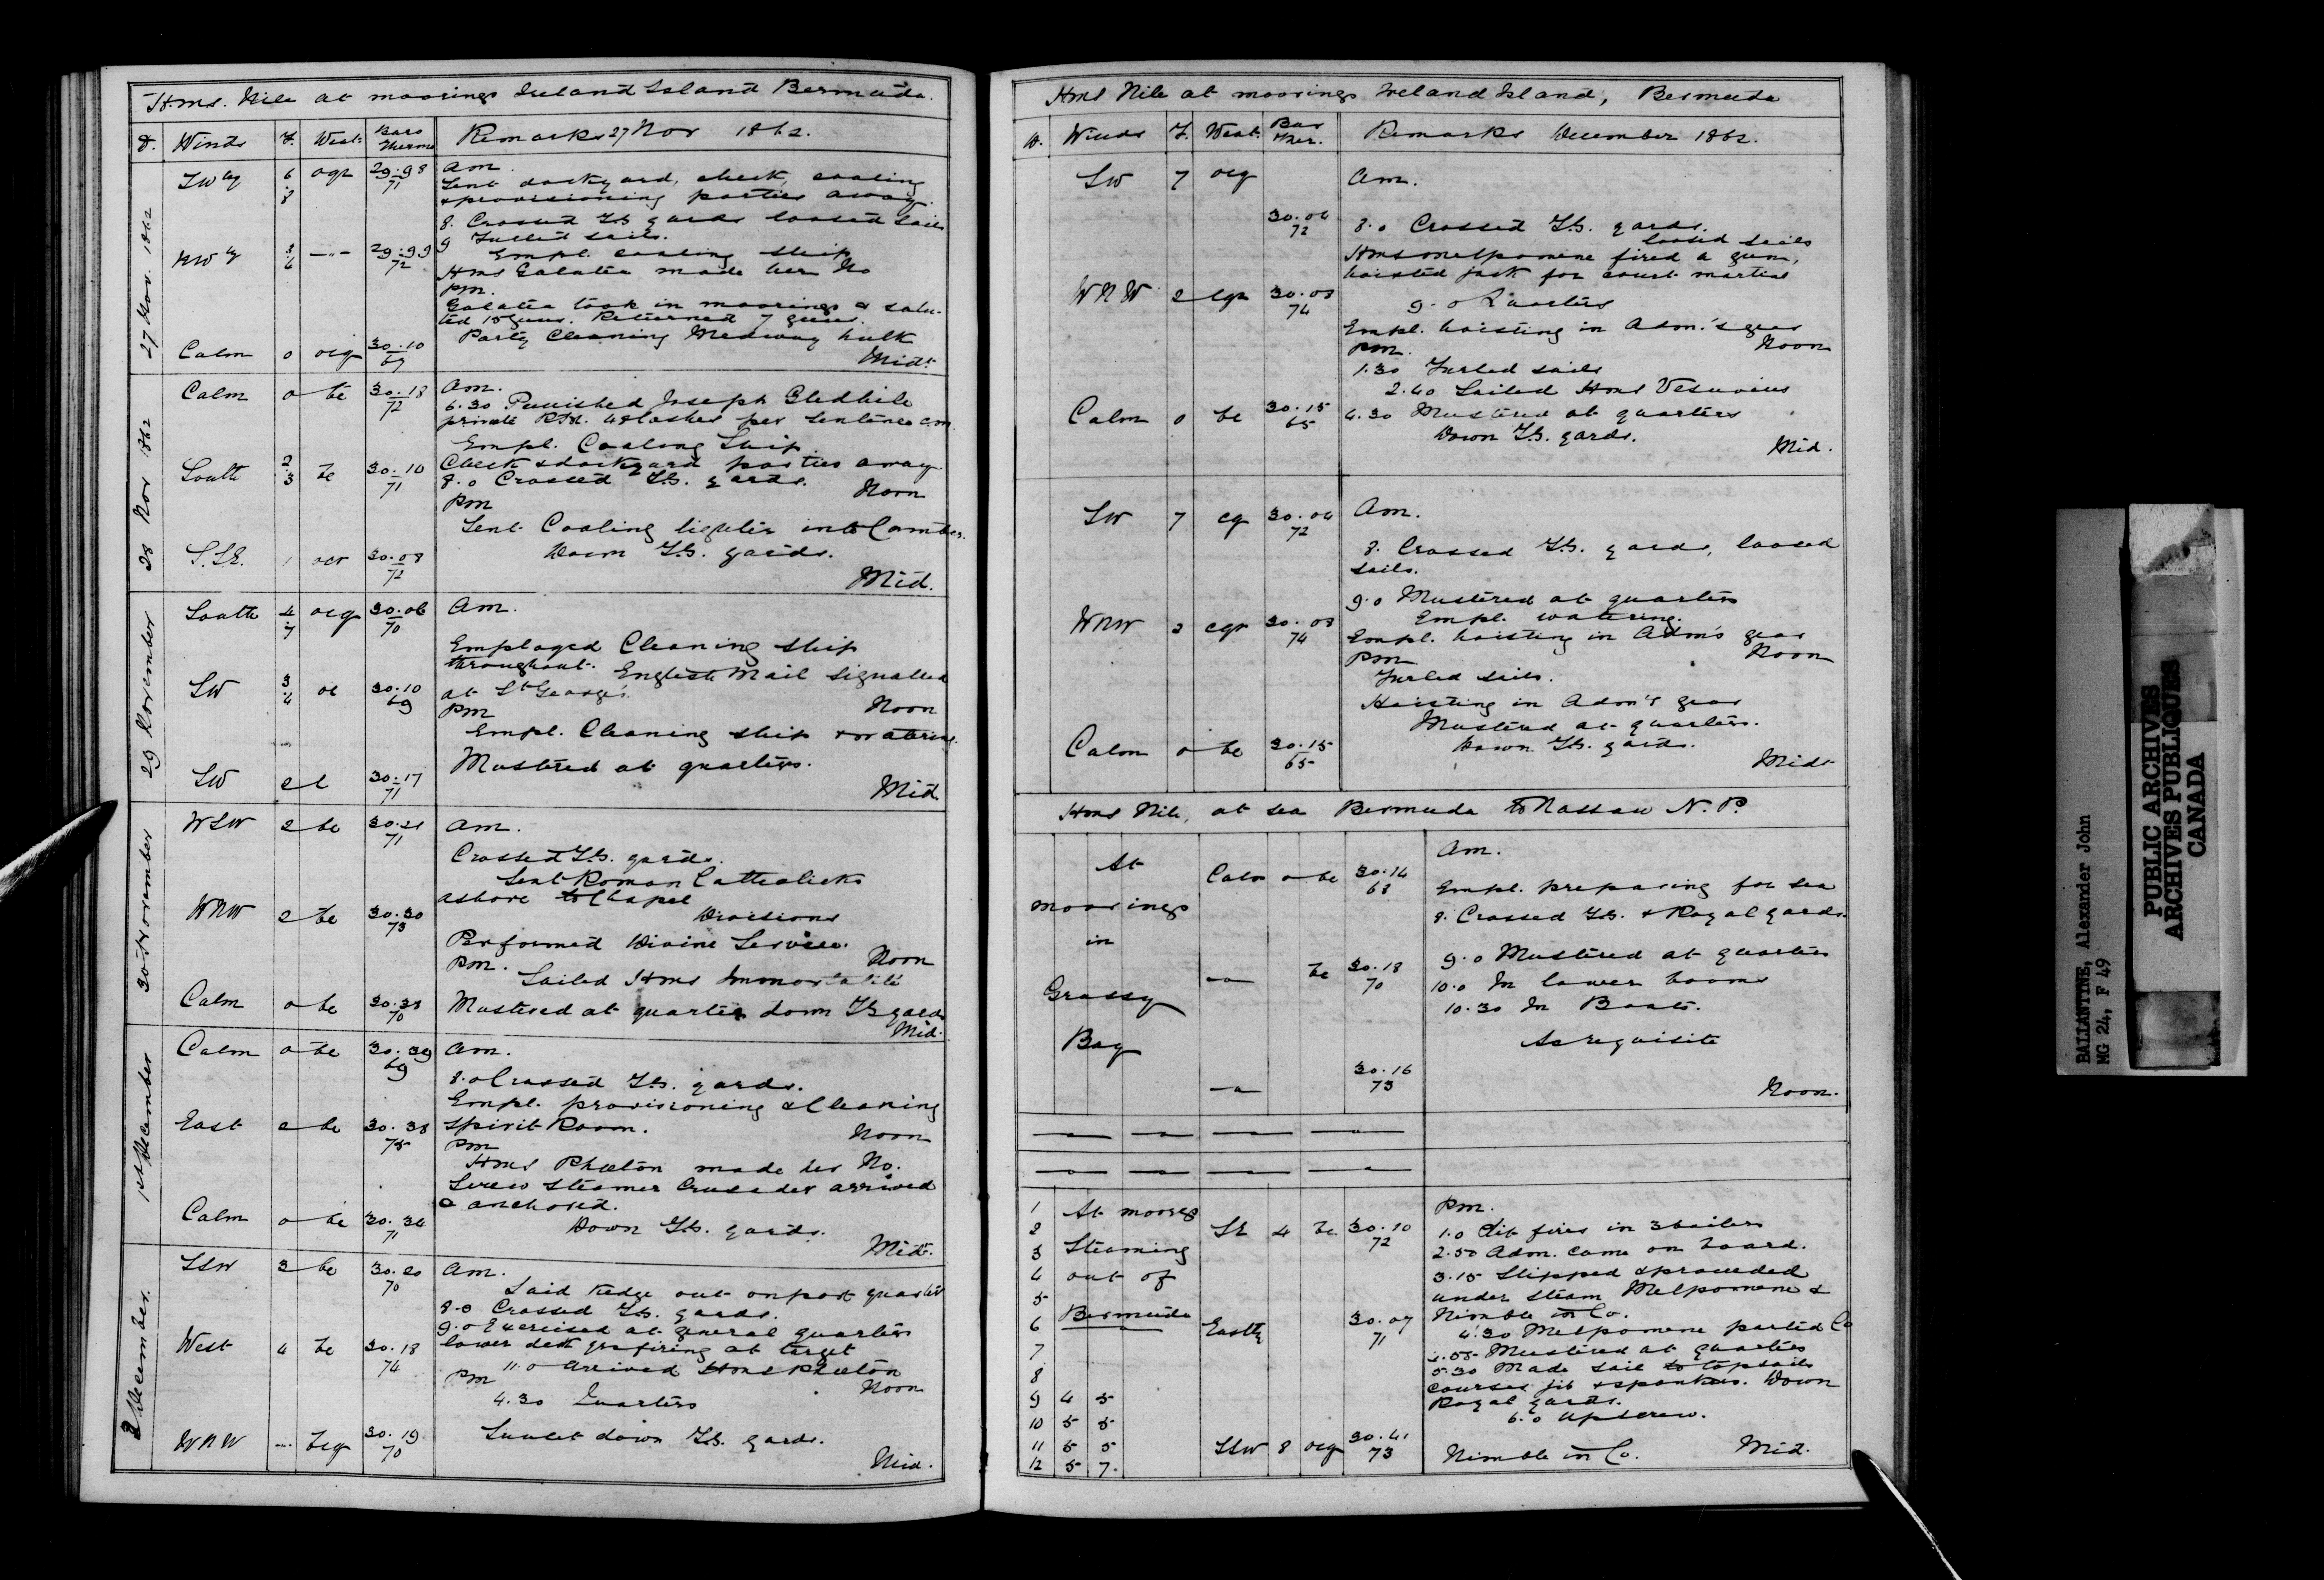 Hms. Nile at moorings Ireland Island Bermuda.
D. Winds F. Weat: Baro Thermo Remarks 27 Nov 1862.
27 Nov. 1862
SWly 6 8 ogr 29.98 71 Am.
Sent dockyard, check, coaling
& provisioning parties away.
8. Crossed T.G. yards loosed sails
9 Furled sails.
NWly 29.99 72 Empl. coaling ship
Hms Galatea made her No
pm.
Galatea took in moorings & salu-
ted 15 guns. Returned 7 guns.
Party Cleaning Medway hulk
Calm 0 ocq 30.10 69 Midt.
28 Nov 1862
Calm o bc 30.18 72 Am.
6.30 Punished Joseph Gledhile
private R.M. 48 lashes per Sentence C.M.
Empl. Coaling Ship
South 2 3 bc 30.10 71 Check & dockyard parties away
8.0 Crossed T.G. yards. Noon
Pm
Sent Coaling lighter into Camber.
Down T.G. yards.
S.SE. 1 ocr 30.08 72 Mid.
29 November
South 4 7 ocq 30.06 70 Am.
Employed Cleaning ship
throughout. English Mail Signalled
SW 3 4 oc 30.10 69 at St George's.
Pm Noon
Empl. Cleaning ship & watering.
Mustered at quarters.
SW 2 c 30.17 71 Mid
30 November
WSW 2 bc 30.21 71 Am.
Crossed T.G. yards.
Sent Roman Catholicks
ashore to Chapel
WNW 2 bc 30.30 73 Divisions
Performed Divine Service.
Pm. Noon
Sailed Hms Immortalité
Calm o bc 30.38 70 Mustered at quarters down TG yards
Mid.
1st December
Calm o bc 30.39 69 Am.
8.0 Crossed T.G. yards.
Empl. provisioning & Cleaning
East 2 bc 30.38 75 Spirit Room. Noon
Pm
Hms Phæton made her No.
Screw Steamer Crusader arrived
& anchored.
Calm o bc 30.34 71 Down T.G. yards.
Midt.
2 December.
SSW 3 bc 30.20 70 Am.
Laid kedge out on port quarter
8.0 Crossed T.G. yards.
9.0 Exercised at general quarters
West 4 bc 30.18 74 lower deck qrs firing at target
11.0 Arrived Hms Phæton
Pm Noon
4.30 Quarters
Sunset down T.G. yards.
WNW bcq 30.19 70 Mid.
Hms Nile at moorings Ireland Island, Bermuda
D. Winds F. Weat. Bar Ther. Remarks December 1862.
SW 7 ocq Am.
30.04 72 8.0 Crossed T.G. yards.
loosed sails
Hms Melpomene fired a gun,
hoisted jack for court martial
WNW 2 cqr 30.08 74 9.0 Quarters
Empl. hoisting in Adm.'s gear
Pm. Noon
1.30 Furled sails
2.40 Sailed Hms Vesuvius
Calm 0 bc 30.15 65 4.30 Mustered at quarters
Down T.G. yards.
Mid.
SW 7 cq 30.04 72 Am.
8. Crossed T.G. yards, loosed
sails.
9.0 Mustered at quarters
Empl. watering.
WNW 2 cqr 30.08 74 Empl. hoisting in Adm's gear
Pm Noon
Furled sails.
Hoisting in Adm's gear
Mustered at quarters.
Calm o bc 30.15 65 Down T.G. yards.
Midt
Hms Nile, at sea Bermuda to Nassau N.P.
Am.
At Calm o bc 30.14 68 Empl. preparing for sea
moorings 8. Crossed T.G. & Royal yards.
in 9.0 Mustered at quarters
bc 30.18 70 10.0 In lower booms
Grassy 10.30 In Boats.
Bay As requisite
30.16 73 Noon.
1 At moorgs Pm.
2 SE 4 bc 30.10 72 1.0 Lit fires in 3 boilers
3 Steaming 2.50 Adm. came on board.
4 out of 3.15 Slipped & proceeded
5 under steam Melpomene &
6 Bermuda Eastly 30.07 71 Nimble in Co.
4.30 Melpomene parted Co
7 Mustered at quarters
8 5.30 Made sail to topsails
courses jib & spanker. Down
9 4 5 Royal yards.
10 5 5 6.0 Up screw.
11 5 5 SSW 8 ocq 30.41 73 Nimble in Co. Mid.
12 5 7.
BALLANTINE, Alexander John
MG 24, F 49
PUBLIC ARCHIVES
ARCHIVES PUBLIQUES
CANADA